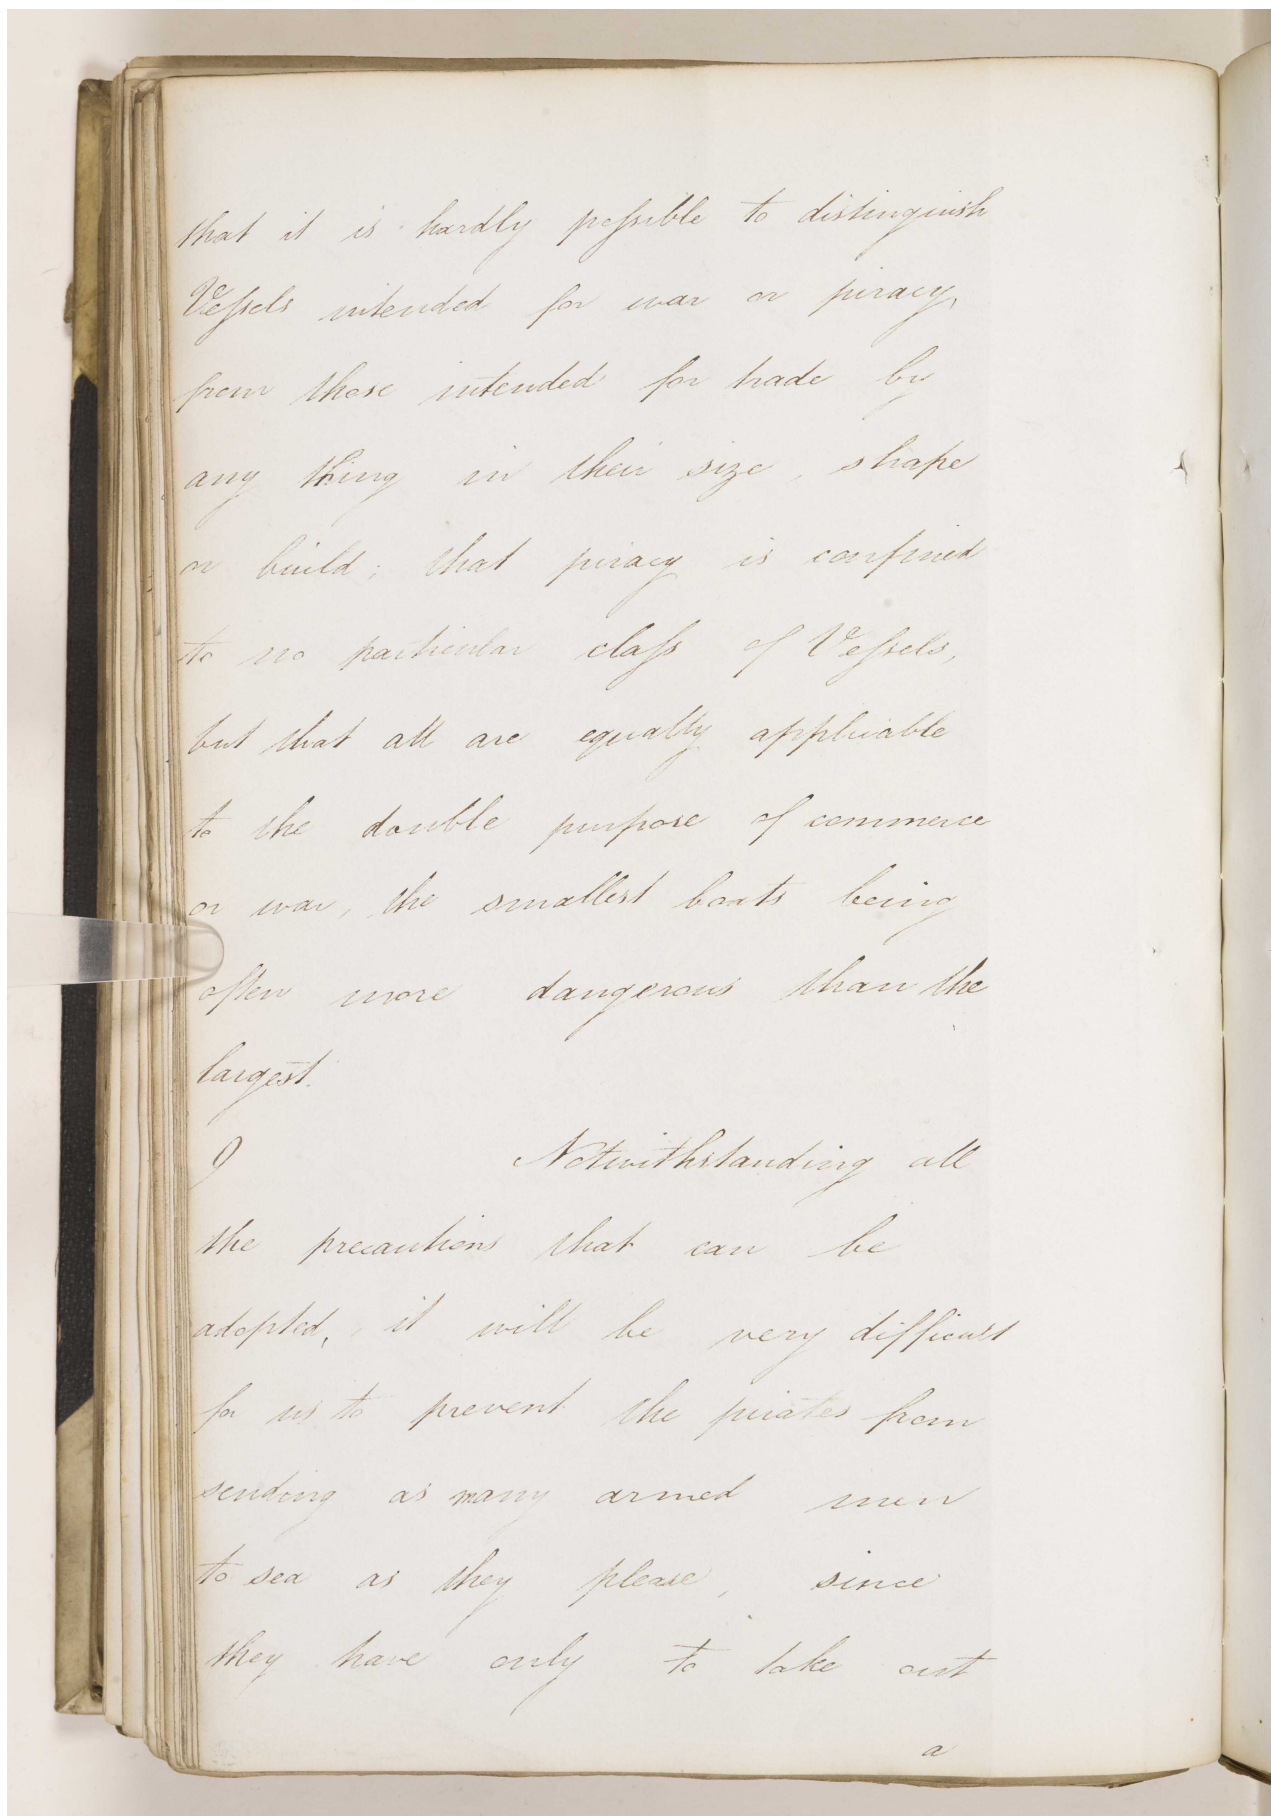 that it is hardly possible to distinguish
Vessels intended for war or piracy,
from those intended for trade by
any thing in their size, shape
or build; that piracy is confined
to no particular class of Vessels,
but that all are equally applicable
to the double purpose of commerce
or war, the smallest boats being
often more dangerous than the
largest.
9 Notwithstanding all
the precautions that can be
adopted, it will be very difficult
for us to prevent the pirates from
sending as many armed men
to sea as they please, since
they have only to take out
a